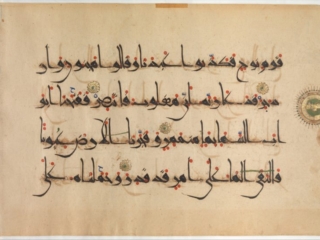 قوم نوح فكذبوا عبدنا وقالوا مجنون وا
زدجر فدعا ربه انى مغلوب فانتصر ففتحنا ابو
اب السما بما منهمر وفجرنا الارض عيونا
فالتقى الما على امر قد قدر وحملناه على